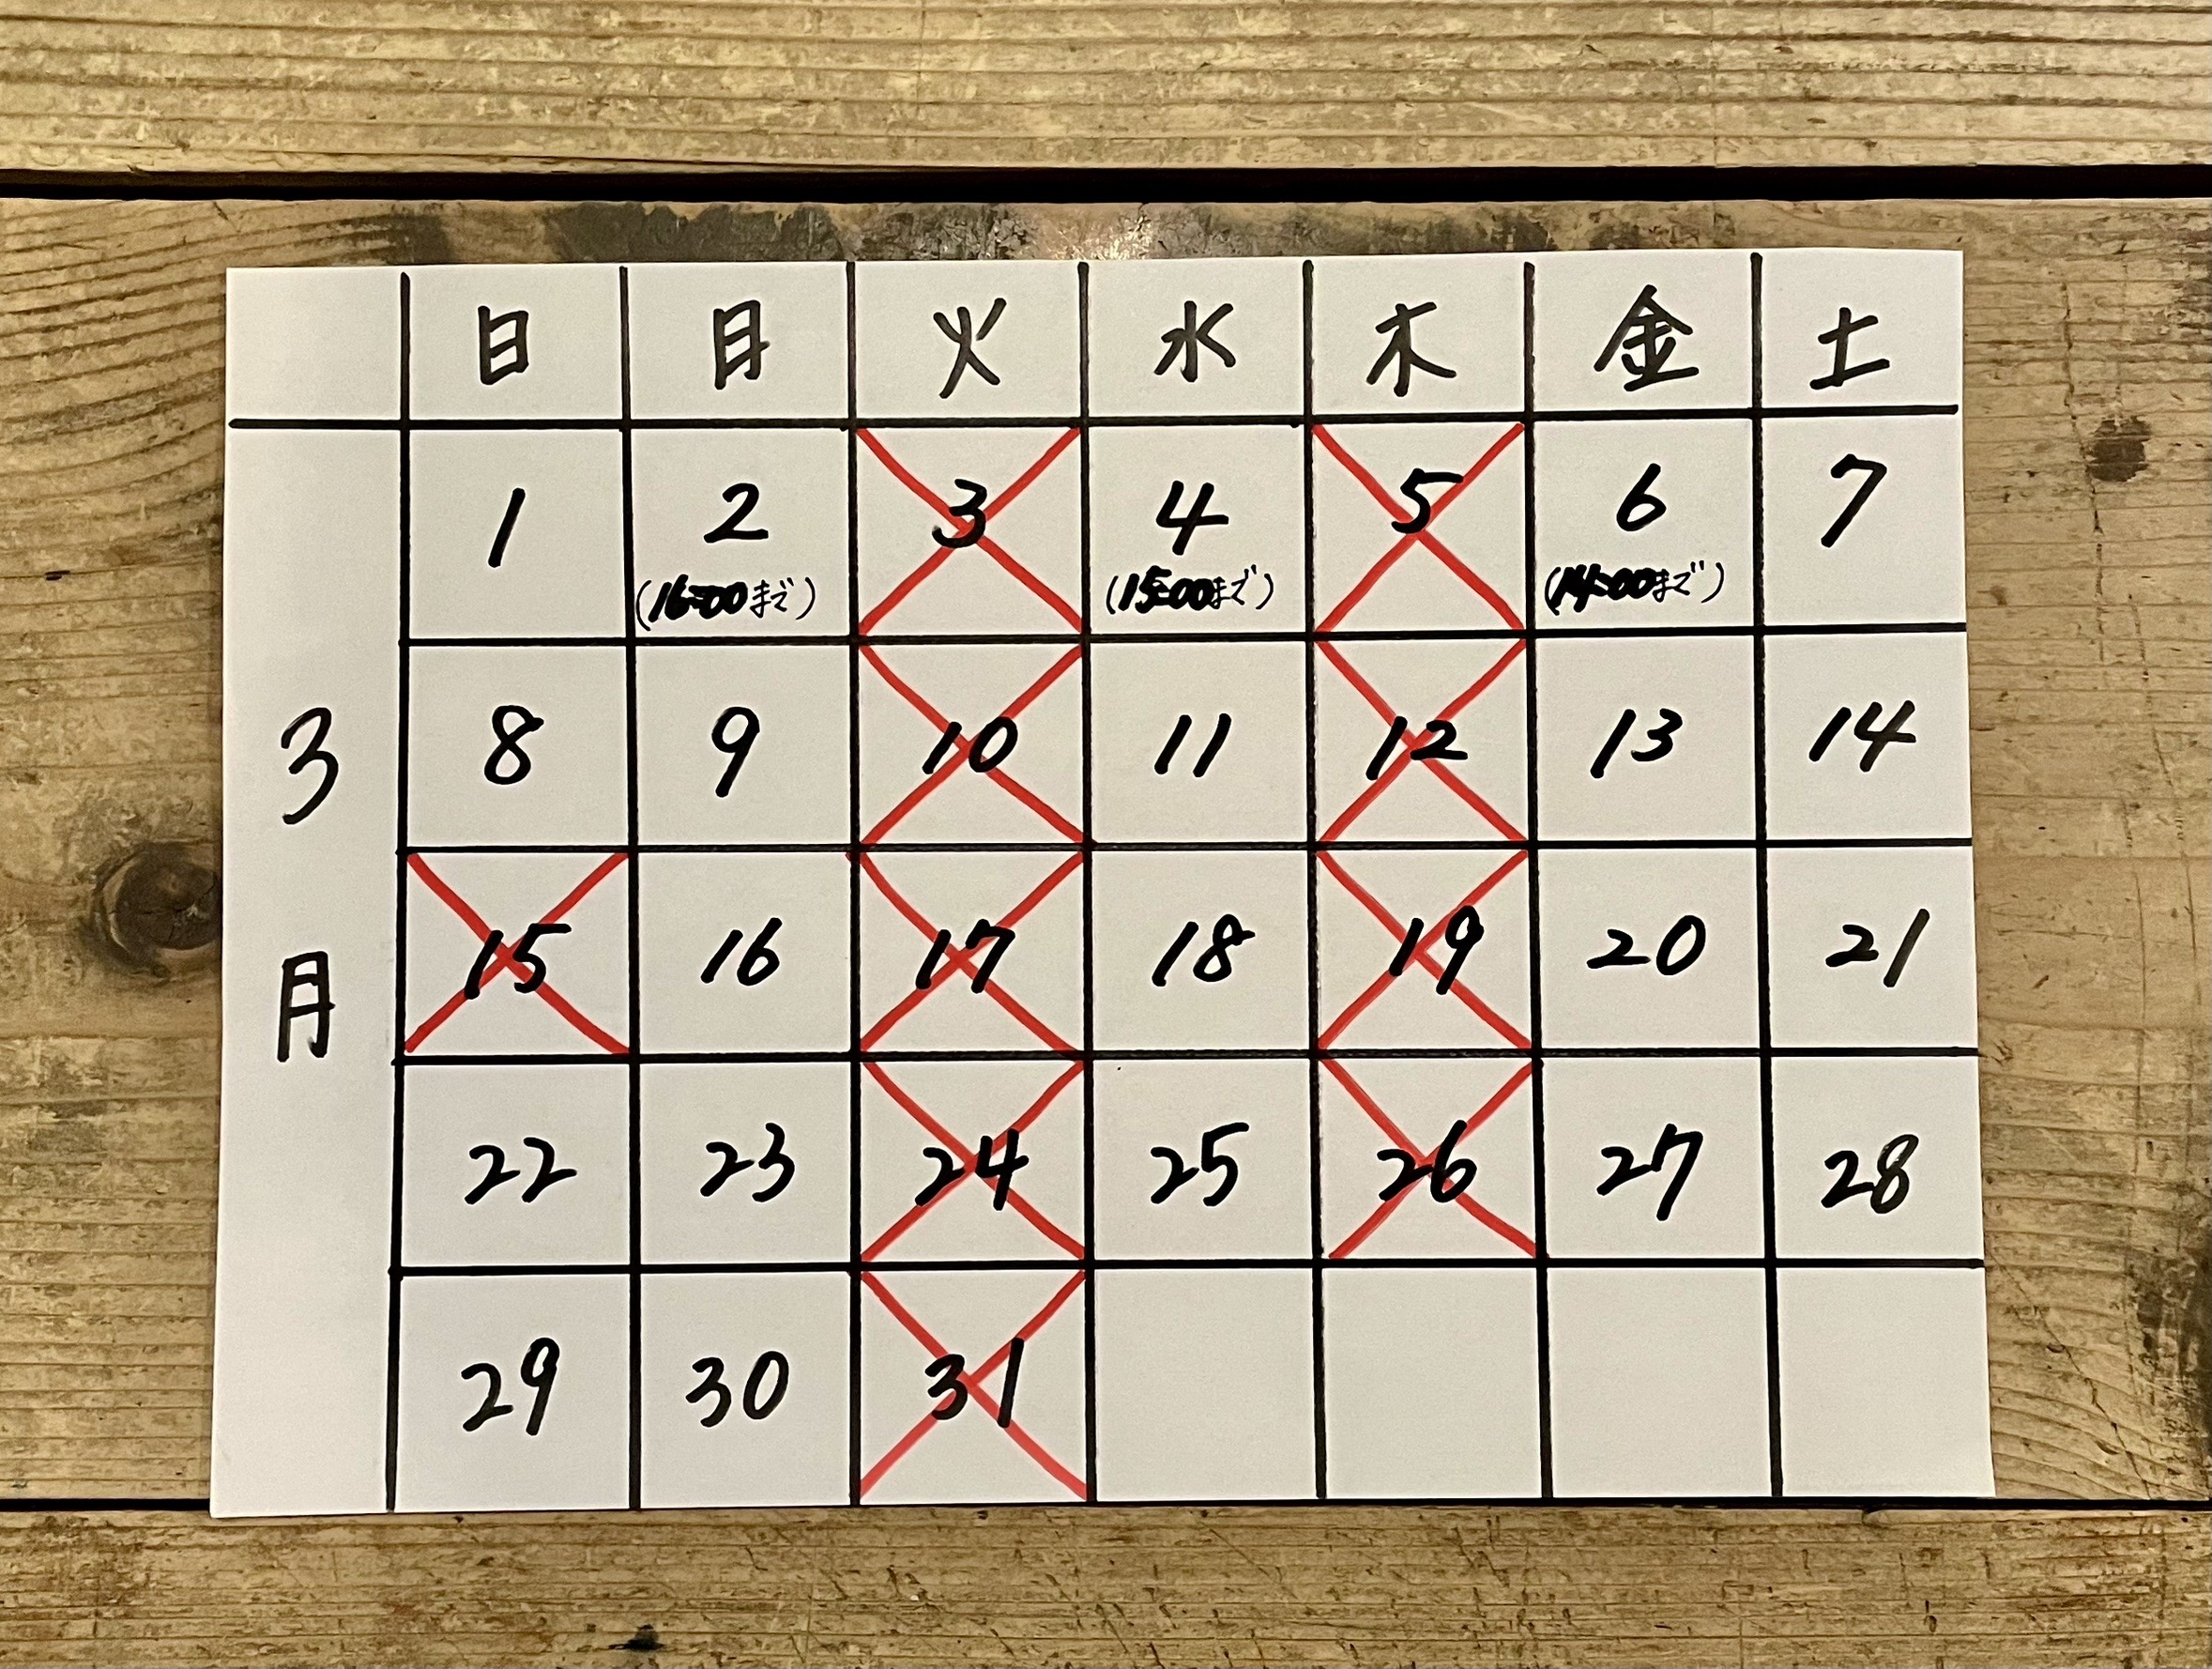 日 月 火 水 木 金 土
3月
1 2 3 4 5 6 7
(16:00まで) (15:00まで) (14:00まで)
8 9 10 11 12 13 14
15 16 17 18 19 20 21
22 23 24 25 26 27 28
29 30 31